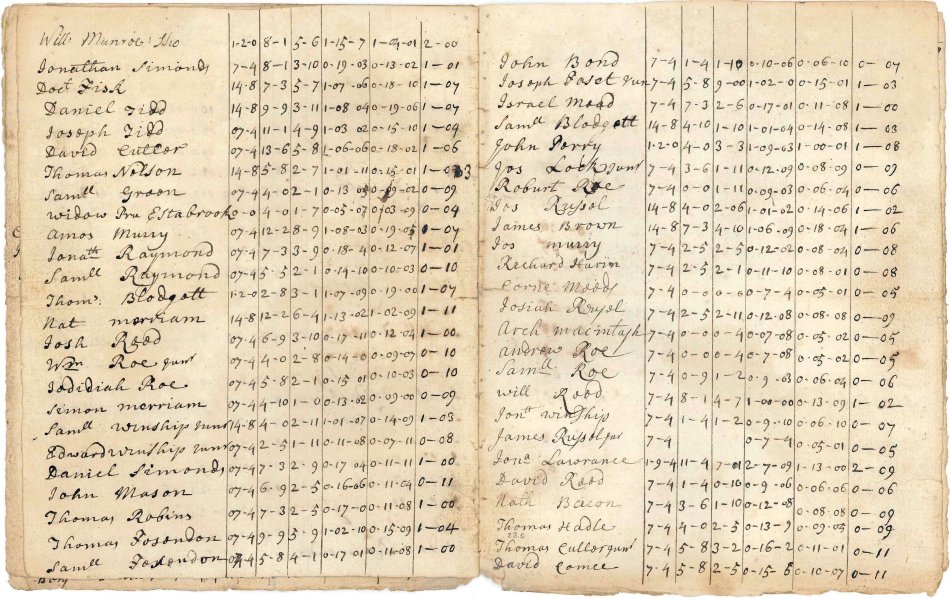 Will Munroe 1-2-0 8-1 5-6 1-15-7 1-04-01 2-00
Jonathan Simonds 7-4 8-1 3-10 0-19-03 0-13-02 1-01
Doct Fisk 14-8 7-3 5-7 1-07-06 0-18-10 1-07
Daniel Tidd 14-8 9-9 3-11 1-08-04 0-19-06 1-07
Joseph Tidd 07-4 11-1 4-9 1-03-02 0-15-10 1-04
David Cutler 07-4 13-6 5-8 1-06-06 0-18-02 1-06
Thomas Nelson 14-8 5-8 2-7 1-01-11 0-15-01
Samll Green 07-4 4-0 2-1 0-13 0-09-02 0-09
widow Pru Estabrook 0-0 4-0 1-7 0-05-07 0-03-09 0-04
Amos Murry 07-4 12-2 8-9 1-08-03 0-19-05 1-07
Jonath Raymond 07-4 7-3 3-9 0-18-4 0-12-07 1-01
Samll Raymond 07-4 5-5 2-1 0-14-10 0-10-03 0-10
Thom. Blodgett 1-2-0 2-8 3-1 1-07-09 0-19-00 1-07
Nat merriam 14-8 12-2 6-4 1-13-02 1-02-09 1-11
Josh Reed 07-4 6-9 3-10 0-17-11 0-12-04 1-00
Wm Roe jun 07-4 4-0 2-8 0-14-0 0-09-07 0-10
Jedidiah Roe 07-4 5-8 2-1 0-15-01 0-10-03 0-10
Simon merriam 07-4 4-10 1-0 0-13-02 0-09-00 0-09
Samll winship jun 14-8 4-0 2-11 1-01-07 0-14-09 1-03
Edward winship jun 07-4 2-5 1-11 0-11-08 0-07-11 0-08
Daniel Simonds 07-4 7-3 2-9 0-17-04 0-11-11 1-00
John Mason 07-4 6-9 2-5 0-16-06 0-11-04 0-11
Thomas Robins 07-4 7-3 2-5 0-17-00 0-11-08 1-00
Thomas Fesendon 07-4 9-9 5-9 1-02-10 0-15-09 1-04
Samll Fesendon 07-4 5-8 4-1 0-17-01 0-11-08 1-00
John Bond 7-4 1-4 1-10 0-10-06 0-06-10 0-07
Joseph Foset jun 7-4 5-8 9-00 1-02-0 0-15-01 1-03
Israel Mead 7-4 7-3 2-6 0-17-01 0-11-08 1-00
Samll Blodgett 14-8 4-10 1-10 1-01-04 0-14-08 1-03
John Perry 1-2-0 4-0 3-3 1-09-03 1-00-01 1-08
Jos Lock jun 7-4 3-6 1-11 0-12-09 0-08-09 0-09
Roburt Roe 7-4 0-0 1-11 0-09-03 0-06-04 0-06
Jos Russel 14-8 4-0 2-06 1-01-02 0-14-06 1-02
James Brown 14-8 7-3 4-10 1-06-09 0-18-04 1-06
Jos murry 7-4 2-5 2-5 0-12-02 0-08-04 0-08
Rechard Harin 7-4 2-5 2-1 0-11-10 0-08-01 0-08
Corne Meeds 7-4 0-0 0-6 0-7-4 0-05-01 0-05
Josiah Russel 7-4 2-5 2-11 0-12-08 0-08-08 0-09
Arch macintash 7-4 0-0 0-4 0-07-08 0-05-02 0-05
andrew Roe 7-4 0-0 0-4 0-7-08 0-05-02 0-05
Samll Roe 7-4 0-9 1-2 0-9-03 0-06-04 0-06
will Reed 7-4 8-1 4-7 1-00-00 0-13-09 1-02
Jont winship 7-4 1-4 1-2 0-9-10 0-06-10 0-07
James Russel jur 7-4 0-7-4 0-05-01 0-05
Jona Lawrance 1-9-4 11-4 7-01 2-7-09 1-13-00 2-09
David Reed 7-4 1-4 0-10 0-9-06 0-06-06 0-06
Nath Bacon 7-4 3-6 1-10 0-12-08 0-08-08 0-09
Thomas Hadle 7-4 4-0 2-5 0-13-9 0-09-05 0-09
Thomas Cutler jun 7-4 5-8 3-2 0-16-2 0-11-01 0-11
David Comee 7-4 5-8 2-5 0-15-5 0-10-07 0-11